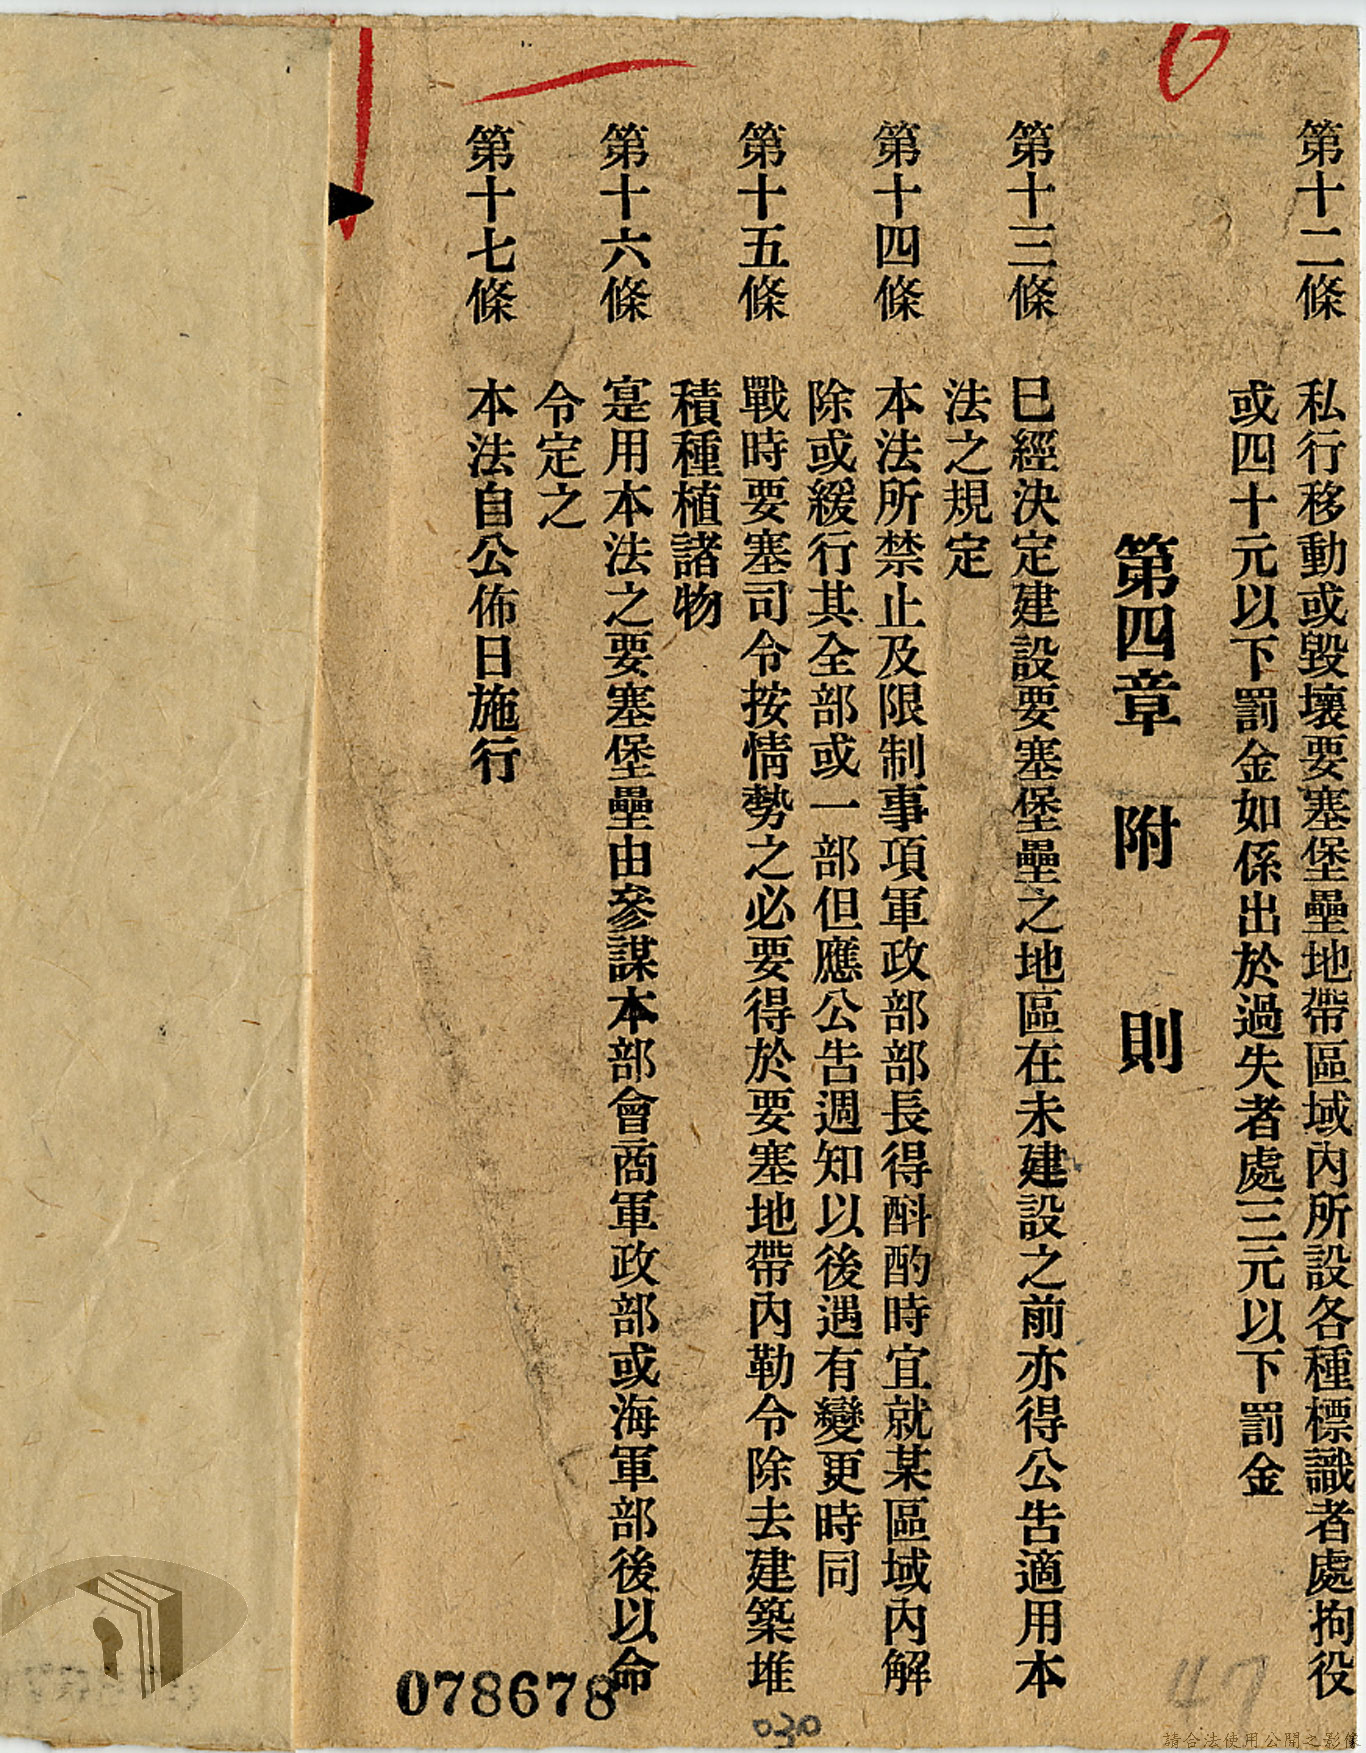 第十二條　私行移動或毀壞要塞堡壘地帶區域內所設各種標識者處拘役
或四十元以下罰金如係出於過失者處三元以下罰金
第四章　附　則
第十三條　已經決定建設要塞堡壘之地區在未建設之前亦得公告適用本
法之規定
第十四條　本法所禁止及限制事項軍政部部長得斟酌時宜就某區域內解
除或緩行其全部或一部但應公告週知以後遇有變更時同
第十五條　戰時要塞司令按情勢之必要得於要塞地帶內勒令除去建築堆
積種植諸物
第十六條　寔用本法之要塞堡壘由參謀本部會商軍政部或海軍部後以命
令定之
第十七條　本法自公佈日施行
078678
030
47
請合法使用公開之影像